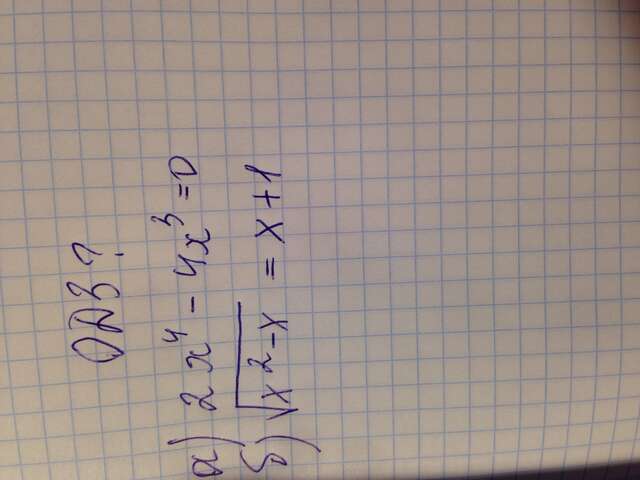 ОДЗ?
а) 2x⁴ - 4x³ = 0
б) √(x² - x) = x + 1